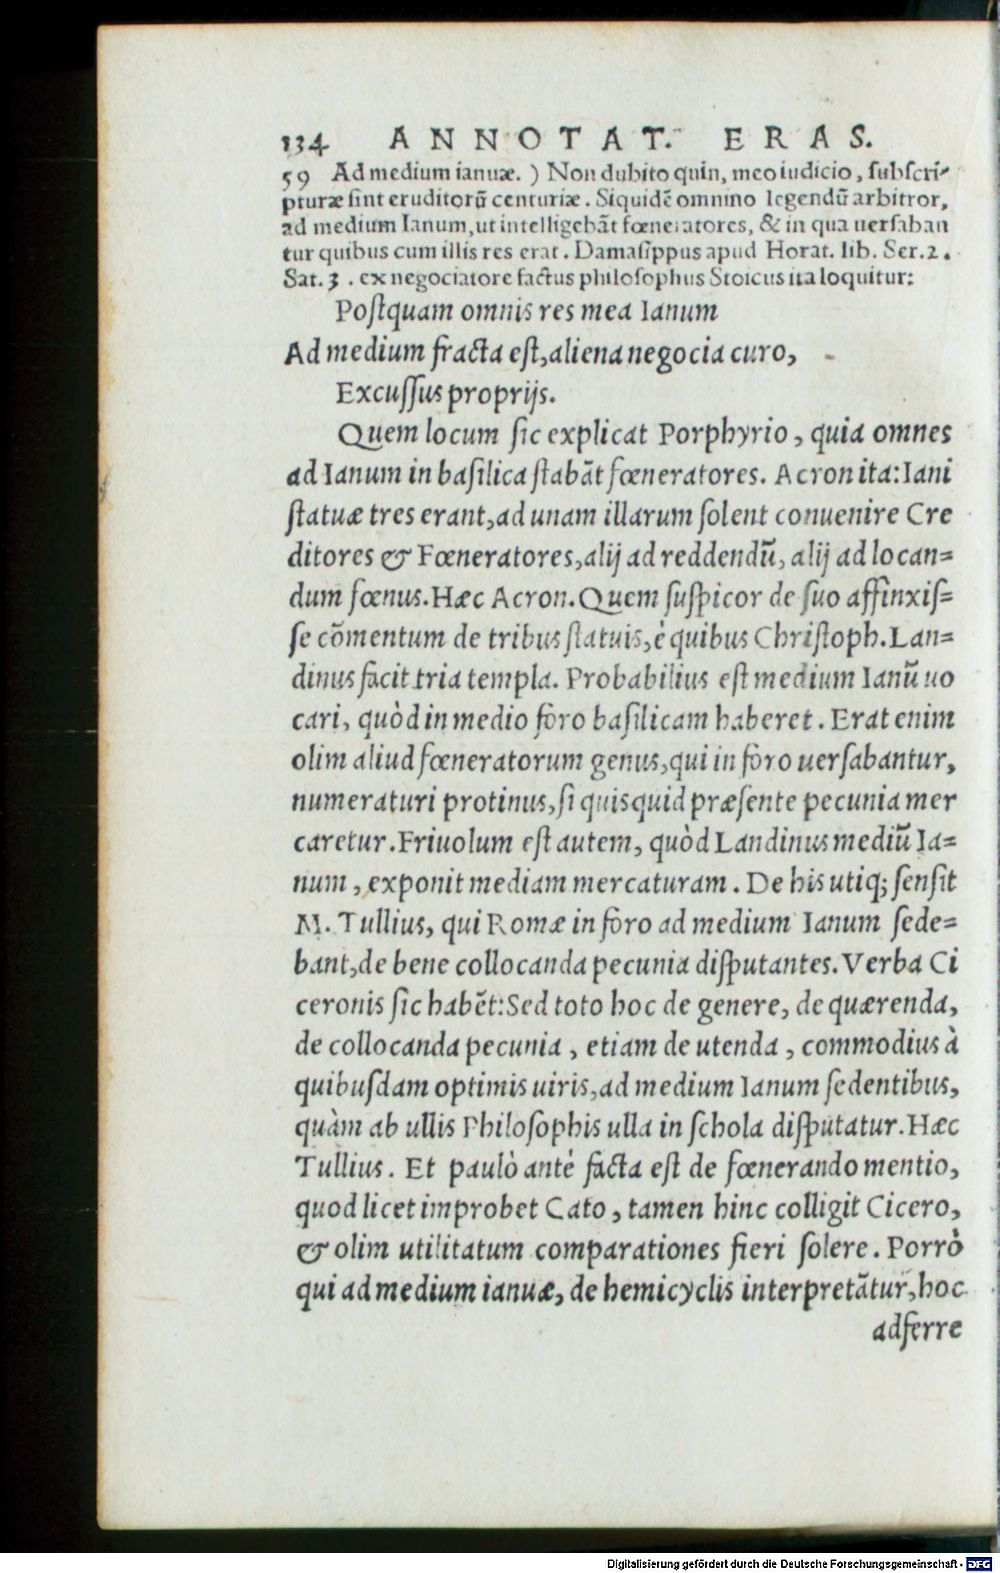 134 ANNOTAT. ERAS.
59 Ad medium ianuæ. ) Non dubito quin, meo iudicio, ſubſcri-
pturæ ſint eruditorũ centuriæ. Siquidẽ omnino legendũ arbitror,
ad medium Ianum, ut intelligebãt fœneratores, & in qua uerſaban
tur quibus cum illis res erat. Damaſippus apud Horat. lib. Ser.2.
Sat. 3. ex negociatore factus philoſophus Stoicus ita loquitur:
Poſtquam omnis res mea Ianum
Ad medium fracta eſt, aliena negocia curo,
Excuſſus proprijs.
Quem locum ſic explicat Porphyrio, quia omnes
ad Ianum in baſilica ſtabãt fœneratores. Acron ita: Iani
ſtatuæ tres erant, ad unam illarum ſolent conuenire Cre
ditores & Fœneratores, alij ad reddendũ, alij ad locan=
dum fœnus. Hæc Acron. Quem ſuſpicor de ſuo affinxiſ=
ſe cõmentum de tribus ſtatuis, è quibus Chriſtoph. Lan=
dinus facit tria templa. Probabilius eſt medium Ianũ uo
cari, quòd in medio foro baſilicam haberet. Erat enim
olim aliud fœneratorum genus, qui in foro uerſabantur,
numeraturi protinus, ſi quis quid præſente pecunia mer
caretur. Friuolum eſt autem, quòd Landinus mediũ Ia=
num, exponit mediam mercaturam. De his utiq; ſenſit
M. Tullius, qui Romæ in foro ad medium Ianum ſede=
bant, de bene collocanda pecunia diſputantes. Verba Ci
ceronis ſic habẽt: Sed toto hoc de genere, de quærenda,
de collocanda pecunia, etiam de utenda, commodius à
quibuſdam optimis uiris, ad medium Ianum ſedentibus,
quàm ab ullis Philoſophis ulla in ſchola diſputatur. Hæc
Tullius. Et paulò antè facta eſt de fœnerando mentio,
quod licet improbet Cato, tamen hinc colligit Cicero,
& olim utilitatum comparationes fieri ſolere. Porrò
qui ad medium ianuæ, de hemicyclis interpretãtur, hoc
adferre
Digitalisierung gefördert durch die Deutsche Forschungsgemeinschaft - DFG